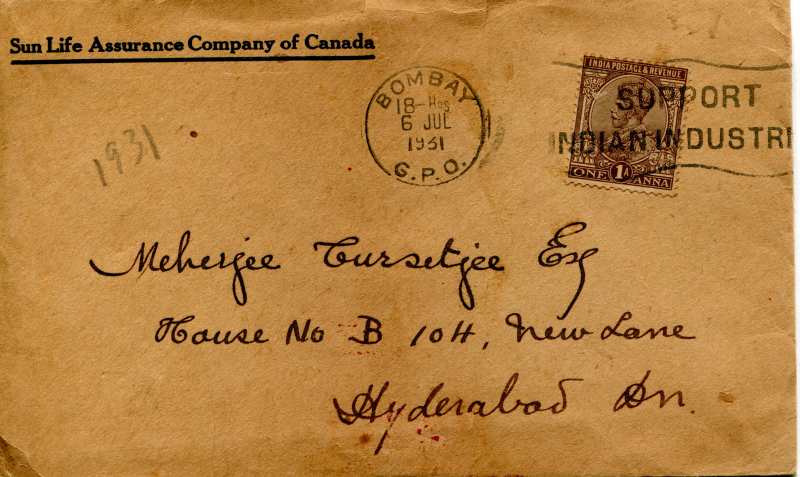 Sun Life Assurance Company of Canada
BOMBAY
18-HRS
6 JUL
1931
G.P.O.
INDIA POSTAGE & REVENUE
ONE 1A ANNA
SUPPORT
INDIAN INDUSTRI
1931
Meherjee Cursetjee Esq
House No B 104, New Lane
Hyderabad Dn.